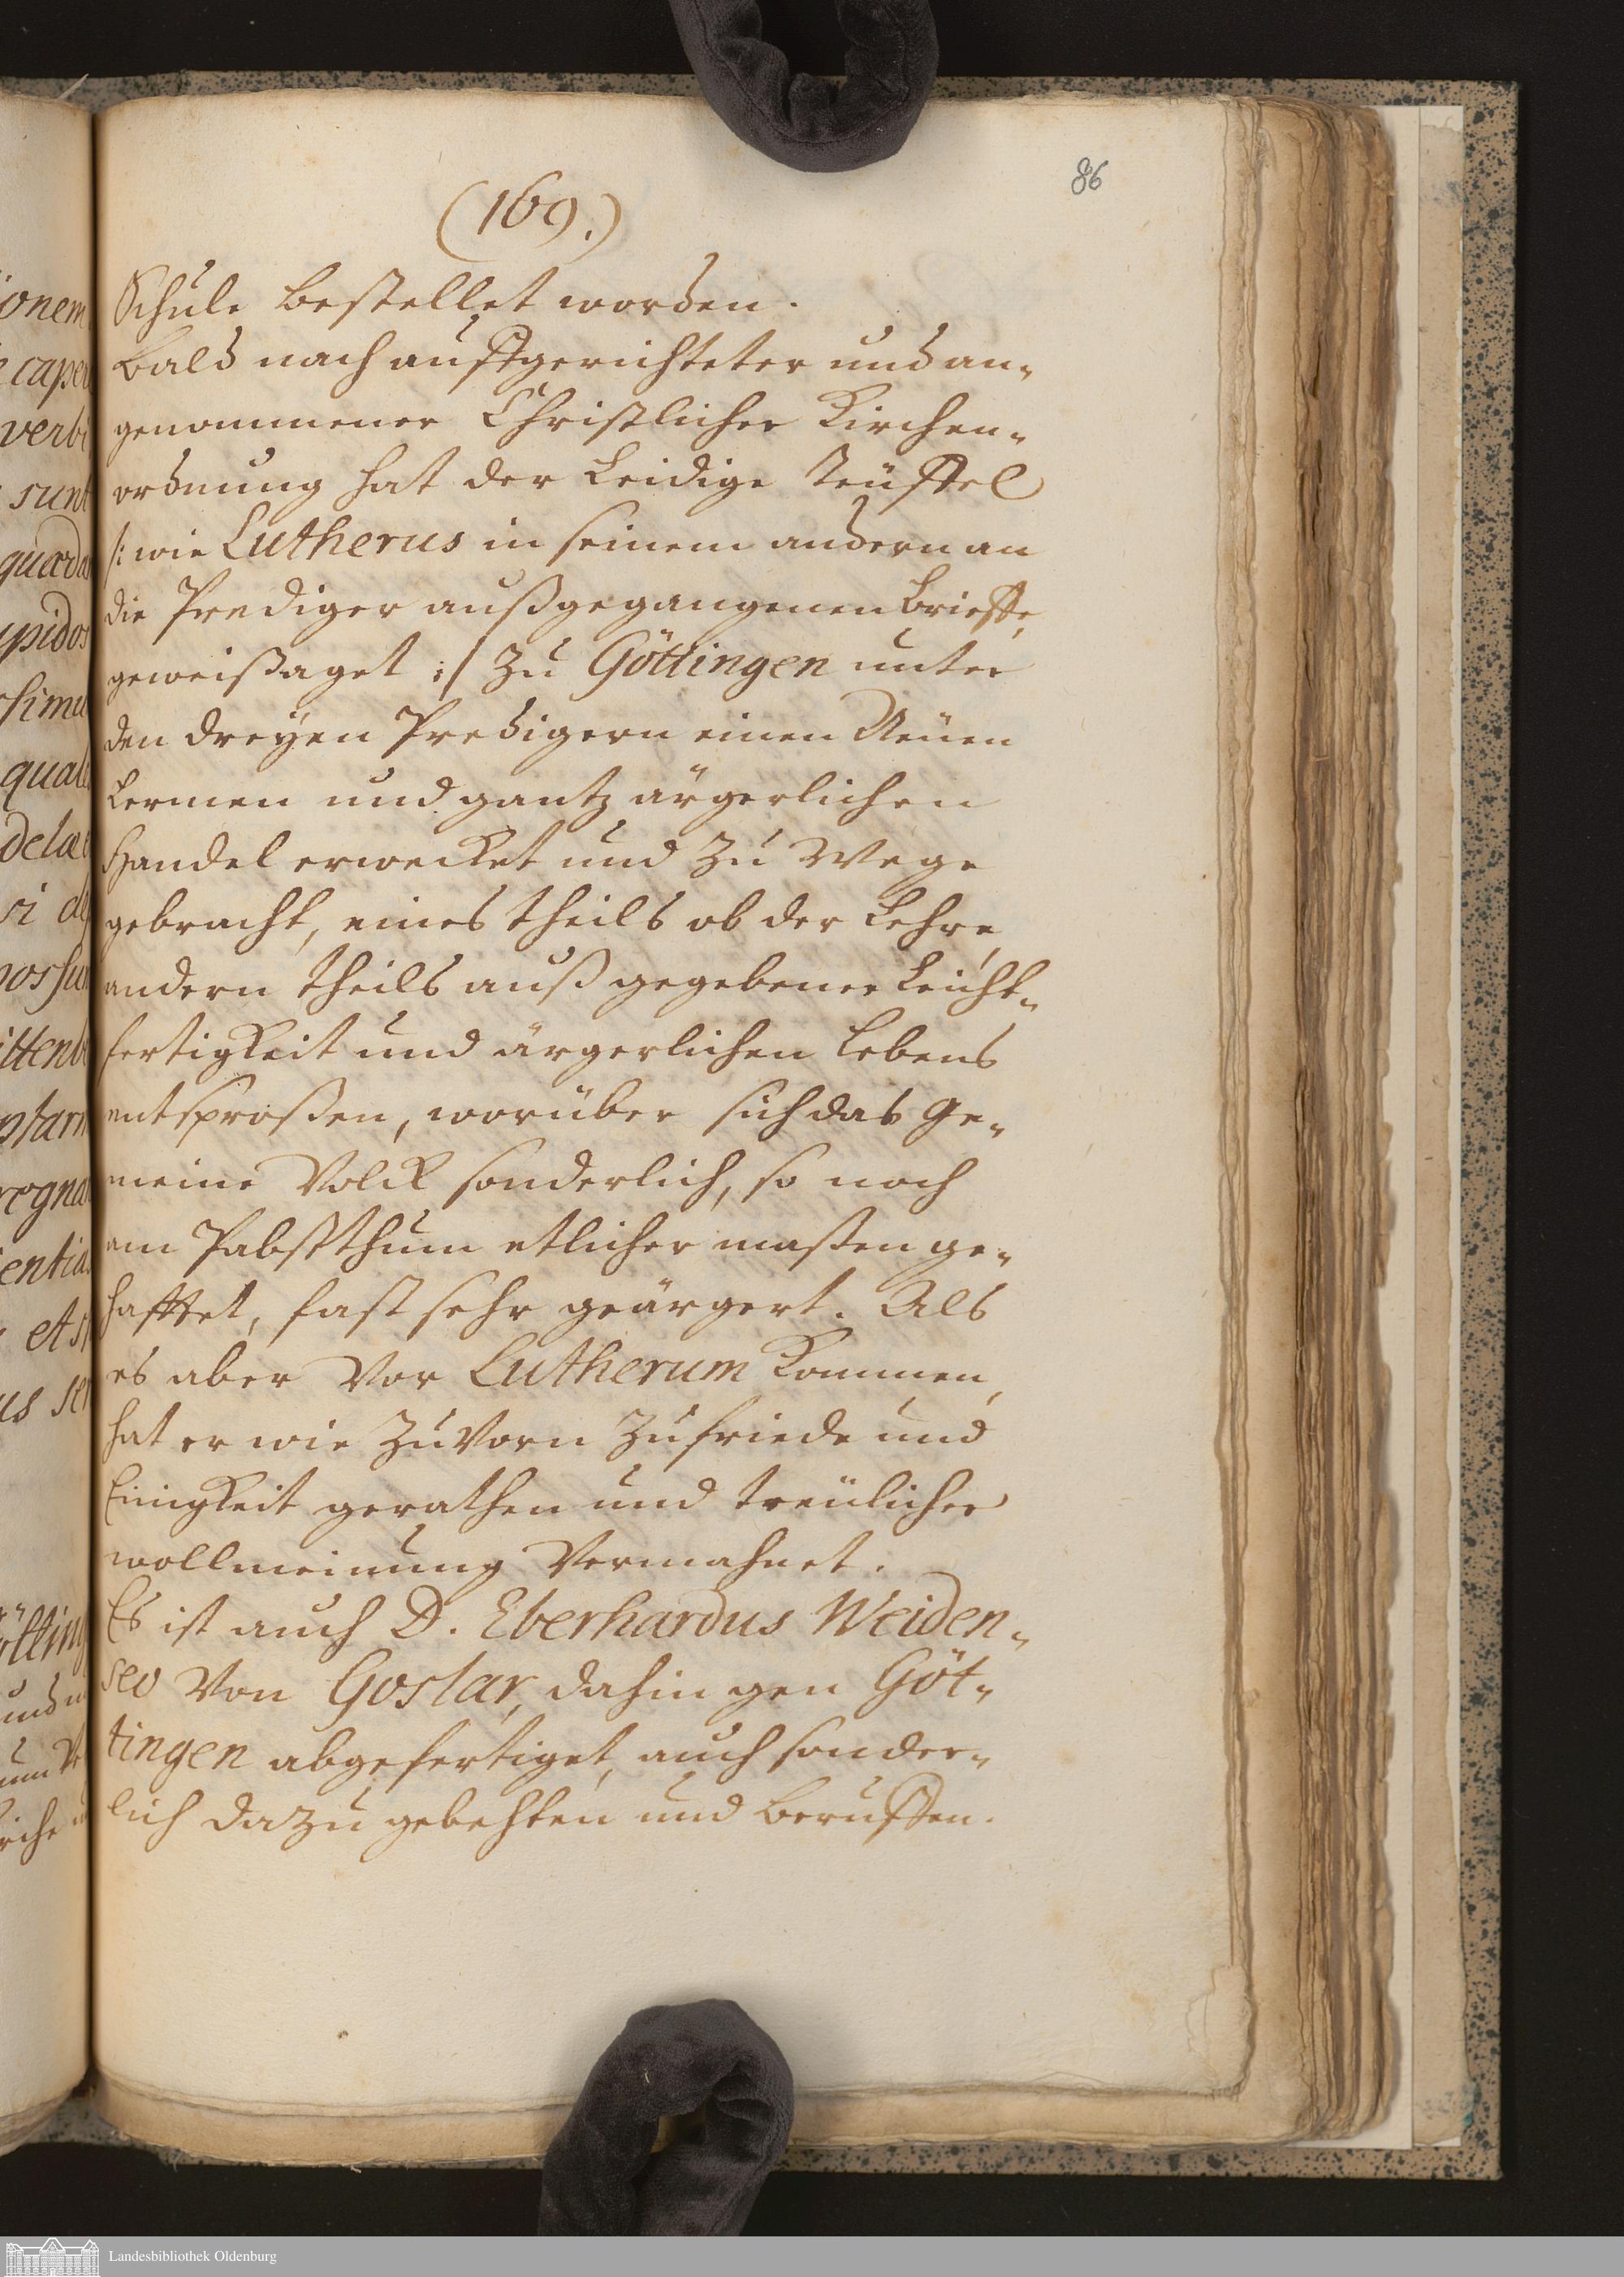 86
(169.)
Schule bestellet worden.
Bald nach auffgerichteter und an-
genommener Christlicher Kirchen-
ordnung hat der Leidige Teüffel
/: wie Lutherus in seinem andern an
die Prediger außgegangenen Brieffe,
geweißaget :/ zu Göttingen unter
den dreyen Predigern einen Neüen
Lermen und gantz ärgerlichen
Handel erwecket und zu Wege
gebracht, eines theils ob der Lehre,
andern theils auß gegebener Leicht-
fertigkeit und ärgerlichen Lebens
entsproßen, worüber sich das Ge-
meine Volck sonderlich, so noch
am Pabstthum etlicher maßen ge-
hafftet, fast sehr geärgert. Als
es aber Vor Lutherum Kommen,
hat er wie zuvorn zu friede und
Einigkeit gerathen und treülicher
wollmeinung Vermahnet.
Es ist auch D. Eberhardus Weiden-
seo Von Goslar, dahin gen Göt-
tingen abgefertiget, auch sonder-
lich dazu gebehten und beruffen.
Landesbibliothek Oldenburg